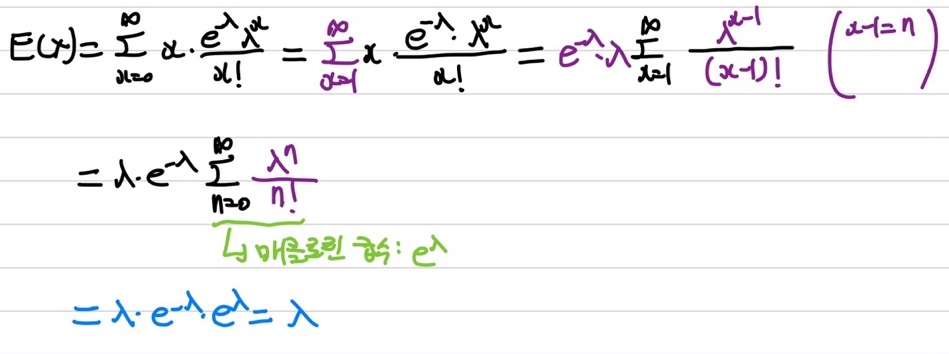 E(x) = ∑_{x=0}^{∞} x · e^{-λ}λ^{x} / x! = ∑_{x=1}^{∞} x · e^{-λ}·λ^{x} / x! = e^{-λ}·λ ∑_{x=1}^{∞} λ^{x-1} / (x-1)! (x-1=n)
= λ·e^{-λ} ∑_{n=0}^{∞} λ^{n} / n!
↳ 매클로린 급수: e^{λ}
= λ·e^{-λ}·e^{λ} = λ